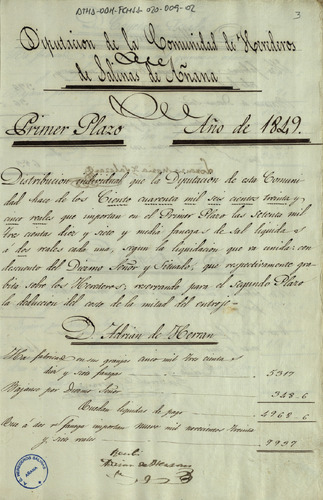 ATHA-DAH-FCHSA-020-009-02
3
Diputacion de la Comunidad de Herederos
de Salinas de Añana
Primer Plazo Año de 1849.
Distribucion individual que la Diputacion de esta Comuni
dad hace de los Ciento cuarenta mil seis cientos treinta y
cinco reales que importan en el Primer Plazo las Setenta mil
tres cientas diez y siete y media fanegas de sal liquida s
á dos reales cada una, segun la liquidacion que va unida: con
descuento del Diezmo Señor y Situado, que respectivamente gra
bita sobre los Herederos; reservando para el segundo Plazo
la deduccion del coste de la mitad del entroje.
D. Adrian de Herran
Ha fabricado en sus granjas cinco mil tres cientas
diez y seis fanegas 5317
Bajanse por Diezmo Señor 348.6
Quedan liquidas de pago 4968.6
Que á dos rs. fanega importan nueve mil novecientos treinta
y seis reales 9937
Recibi